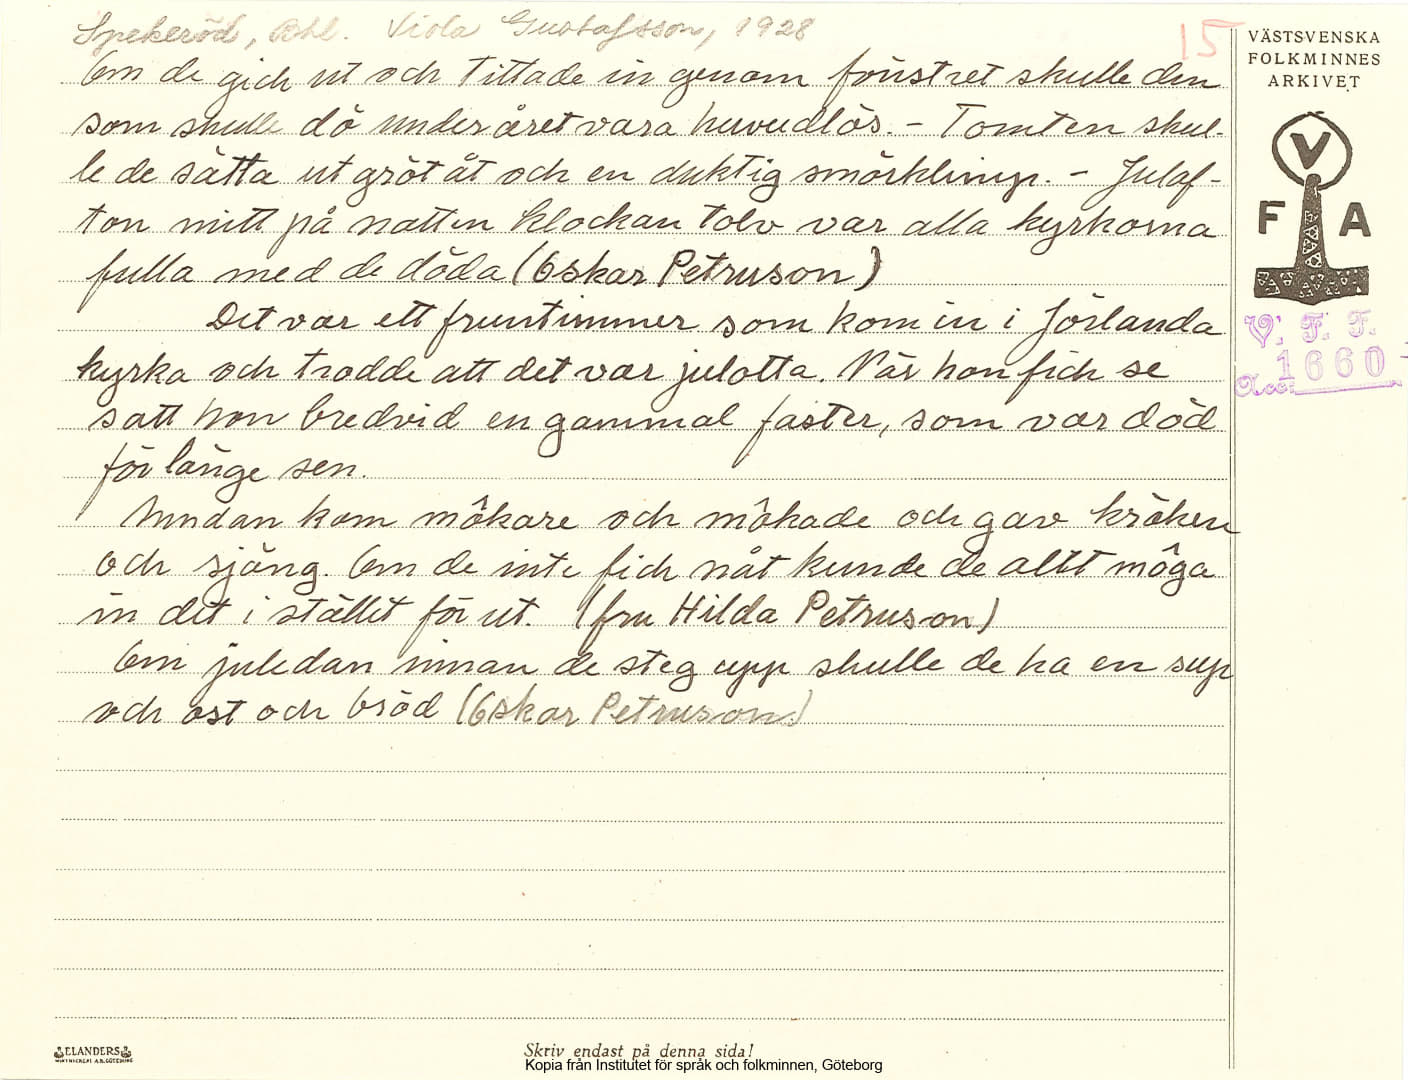 Spekeröd, Bhl. Viola Gustafsson, 1928
15
Om de gick ut och tittade in genom fönstret skulle den
som skulle dö under året vara huvudlös. – Tomten skul-
le de sätta ut gröt åt och en duktig smörklimp. – Julaf-
ton mitt på natten klockan tolv var alla kyrkorna
fulla med de döda (Oskar Petruson)
Det var ett fruntimmer som kom in i Jörlanda
kyrka och trodde att det var julotta. När hon fick se
satt hon bredvid en gammal faster, som var död
för länge sen.
Undan kom môkare och môkade och gav kräken
och sjäng. Om de inte fick nåt kunde de allt môga
in det i stället för ut. (fru Hilda Petruson)
Om juledan innan de steg upp skulle de ha en sup
och ost och bröd (Oskar Petruson)
VÄSTSVENSKA
FOLKMINNES
ARKIVET
V
F A
V. F. F.
Acc: 1660
ELANDERS
Skriv endast på denna sida!
Kopia från Institutet för språk och folkminnen, Göteborg